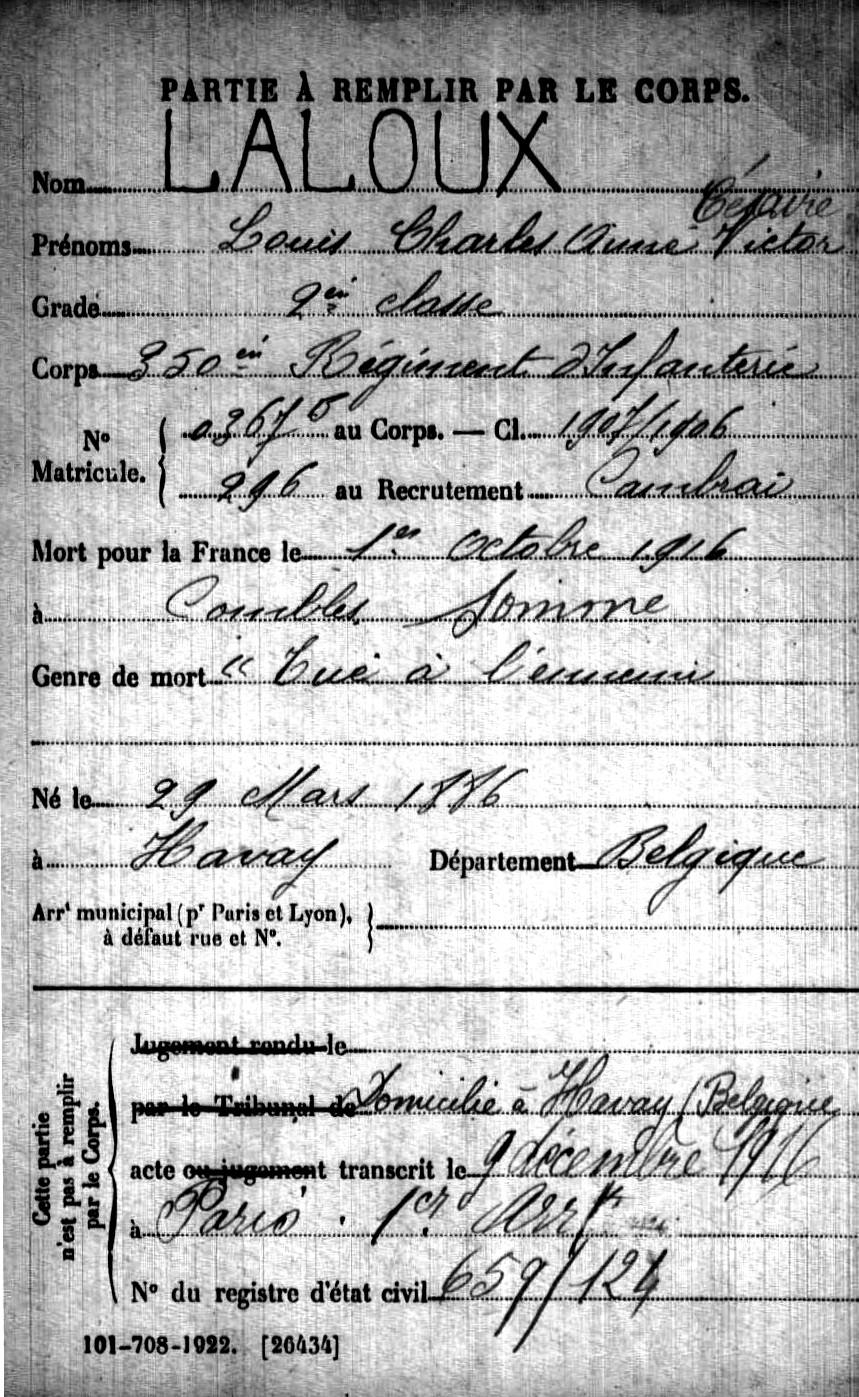 PARTIE À REMPLIR PAR LE CORPS.
Nom LALOUX
Césaire
Prénoms Louis Charles Anne Victor
Grade 2en classe
Corps 350en Régiment d'Infanterie
No Matricule. { 03675 au Corps. — Cl. 1907/1906
296 au Recrutement Cambrai
Mort pour la France le 1er Octobre 1916
à Combles Somme
Genre de mort " Tué à l'ennemi
Né le 29 Mars 1886
à Havay Département Belgique
Arrt municipal (pr Paris et Lyon), à défaut rue et No. }
Cette partie n'est pas à remplir par le Corps.
Jugement rendu le
par le Tribunal de Domicilié à Havay (Belgique
acte ou jugement transcrit le 9 décembre 1916
à Paris . 1er Arrt
No du registre d'état civil 659/124
101-708-1922. [26434]